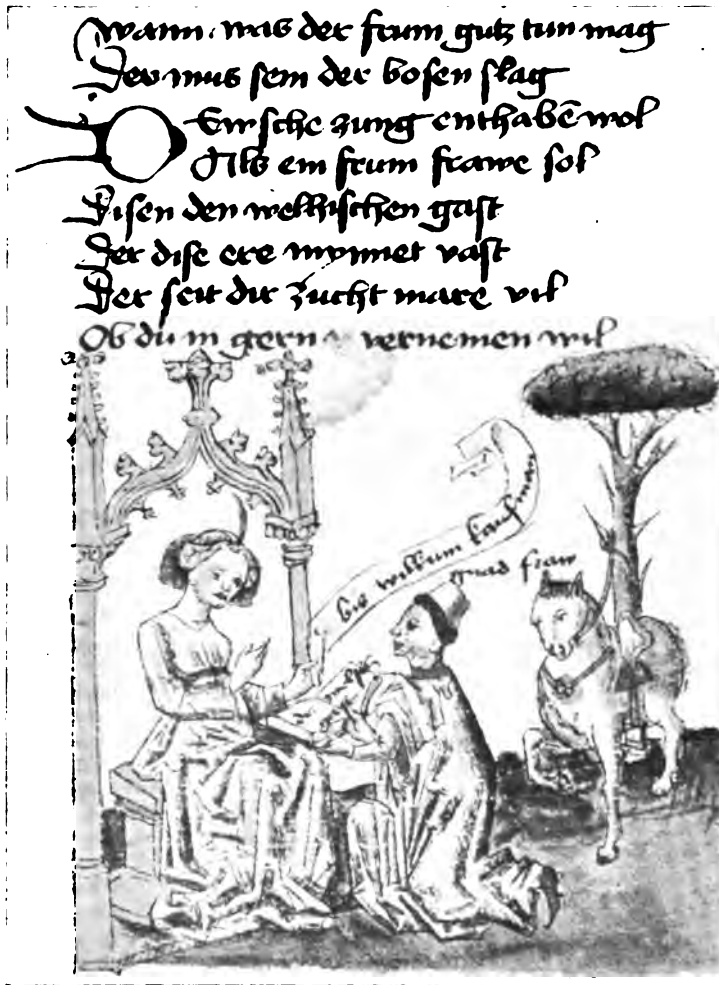 Wann was der frum gutz tun mag
Der mus sein der bosen slag
Dewsche zung enthabē wol
Als ein frum frawe sol
Disen den welhischen gast
Der dise ere mynnet vast
Der seit dir zucht mare vil
Ob du in gern vernemen wil
bis wilkum kaufman
gnad fraw